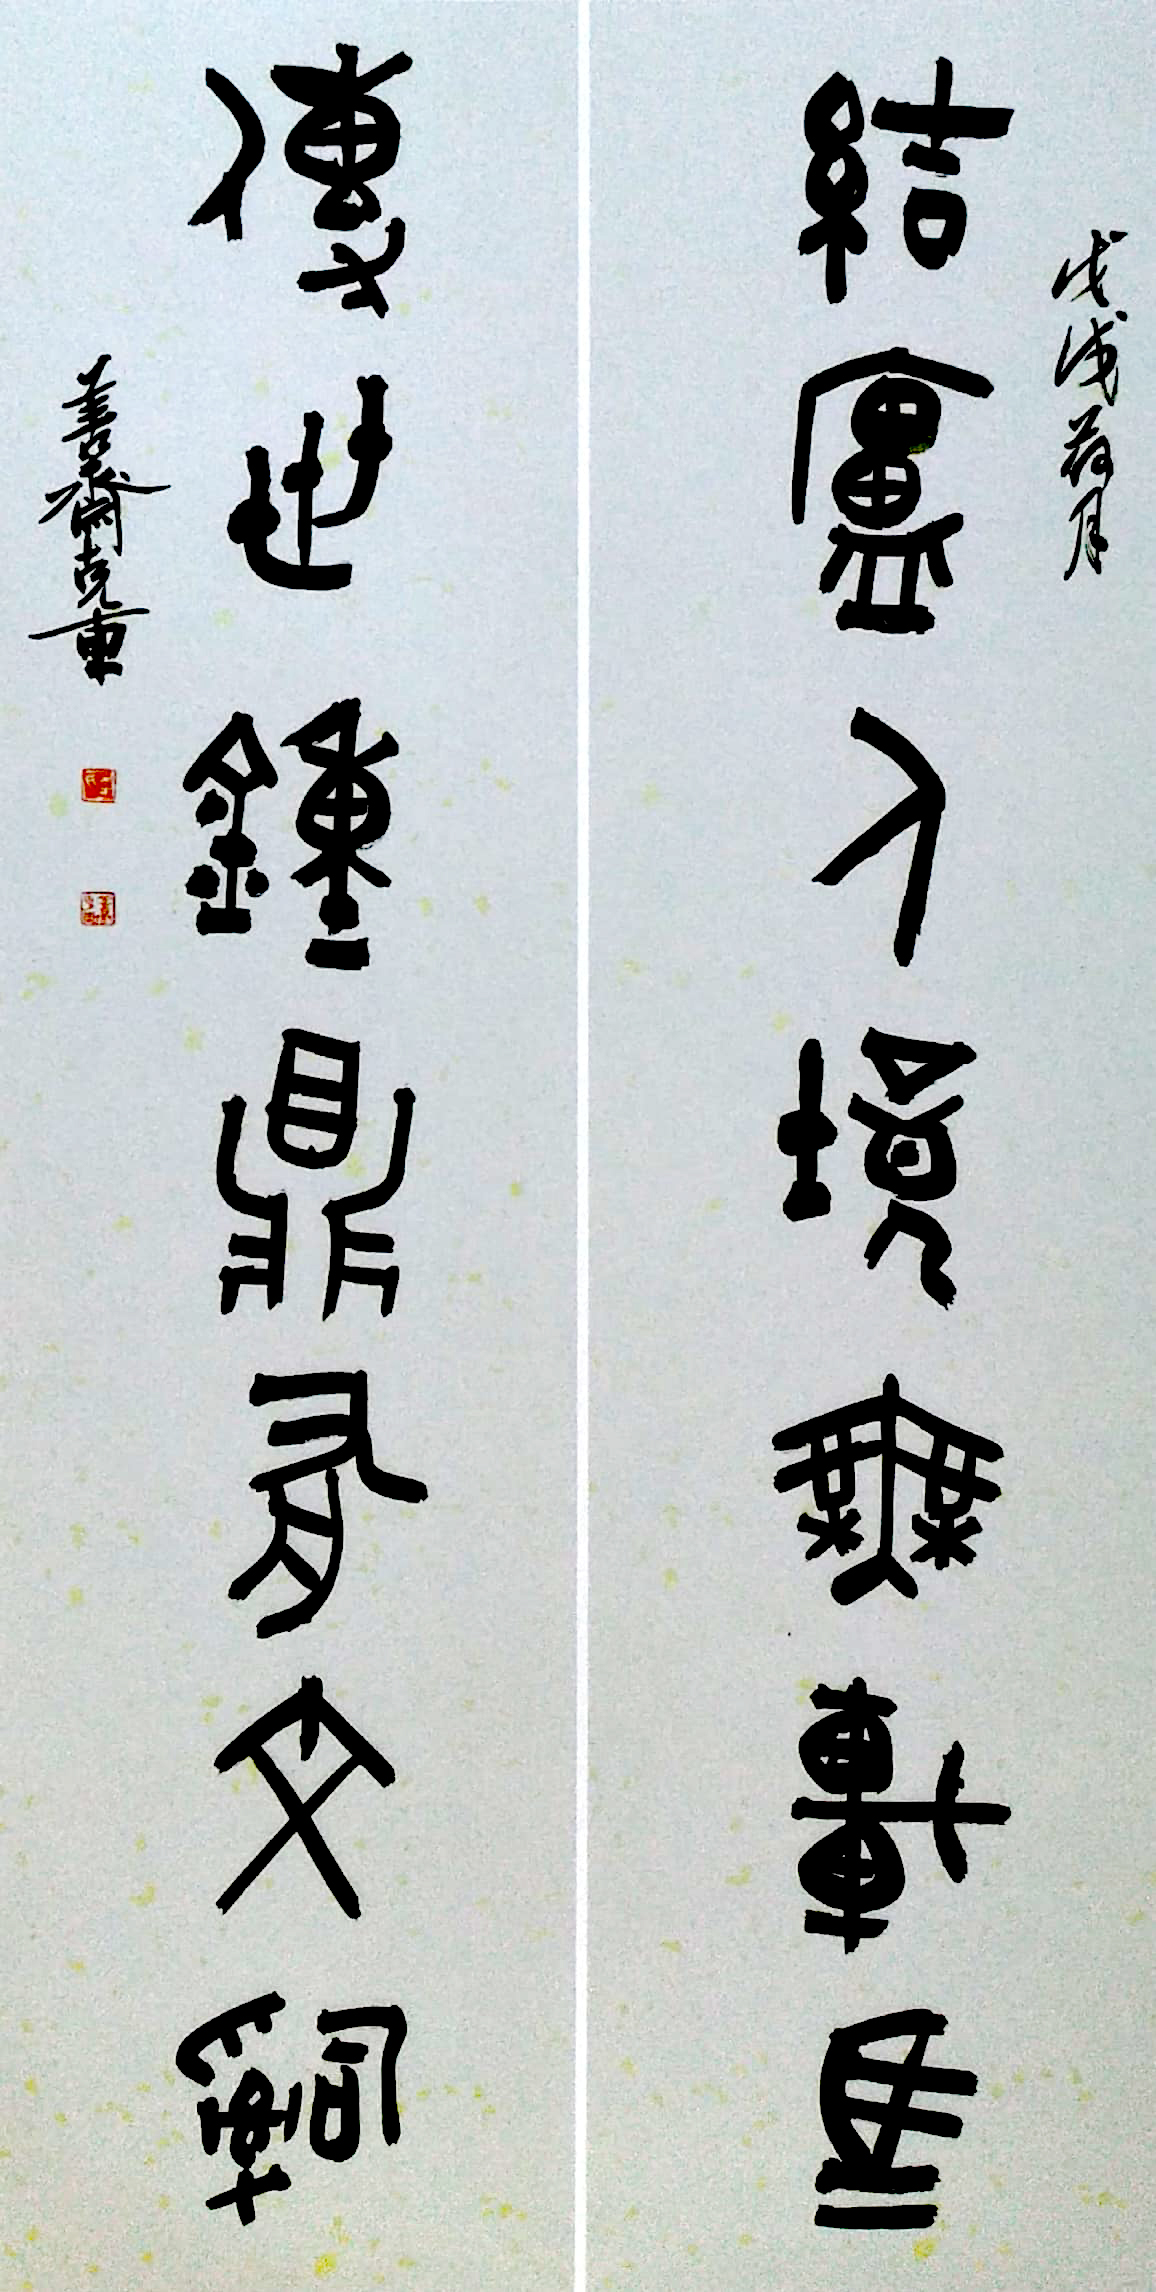 戊戌荷月
結廬人境無車馬
傳世鐘鼎有文辭
善齋克東